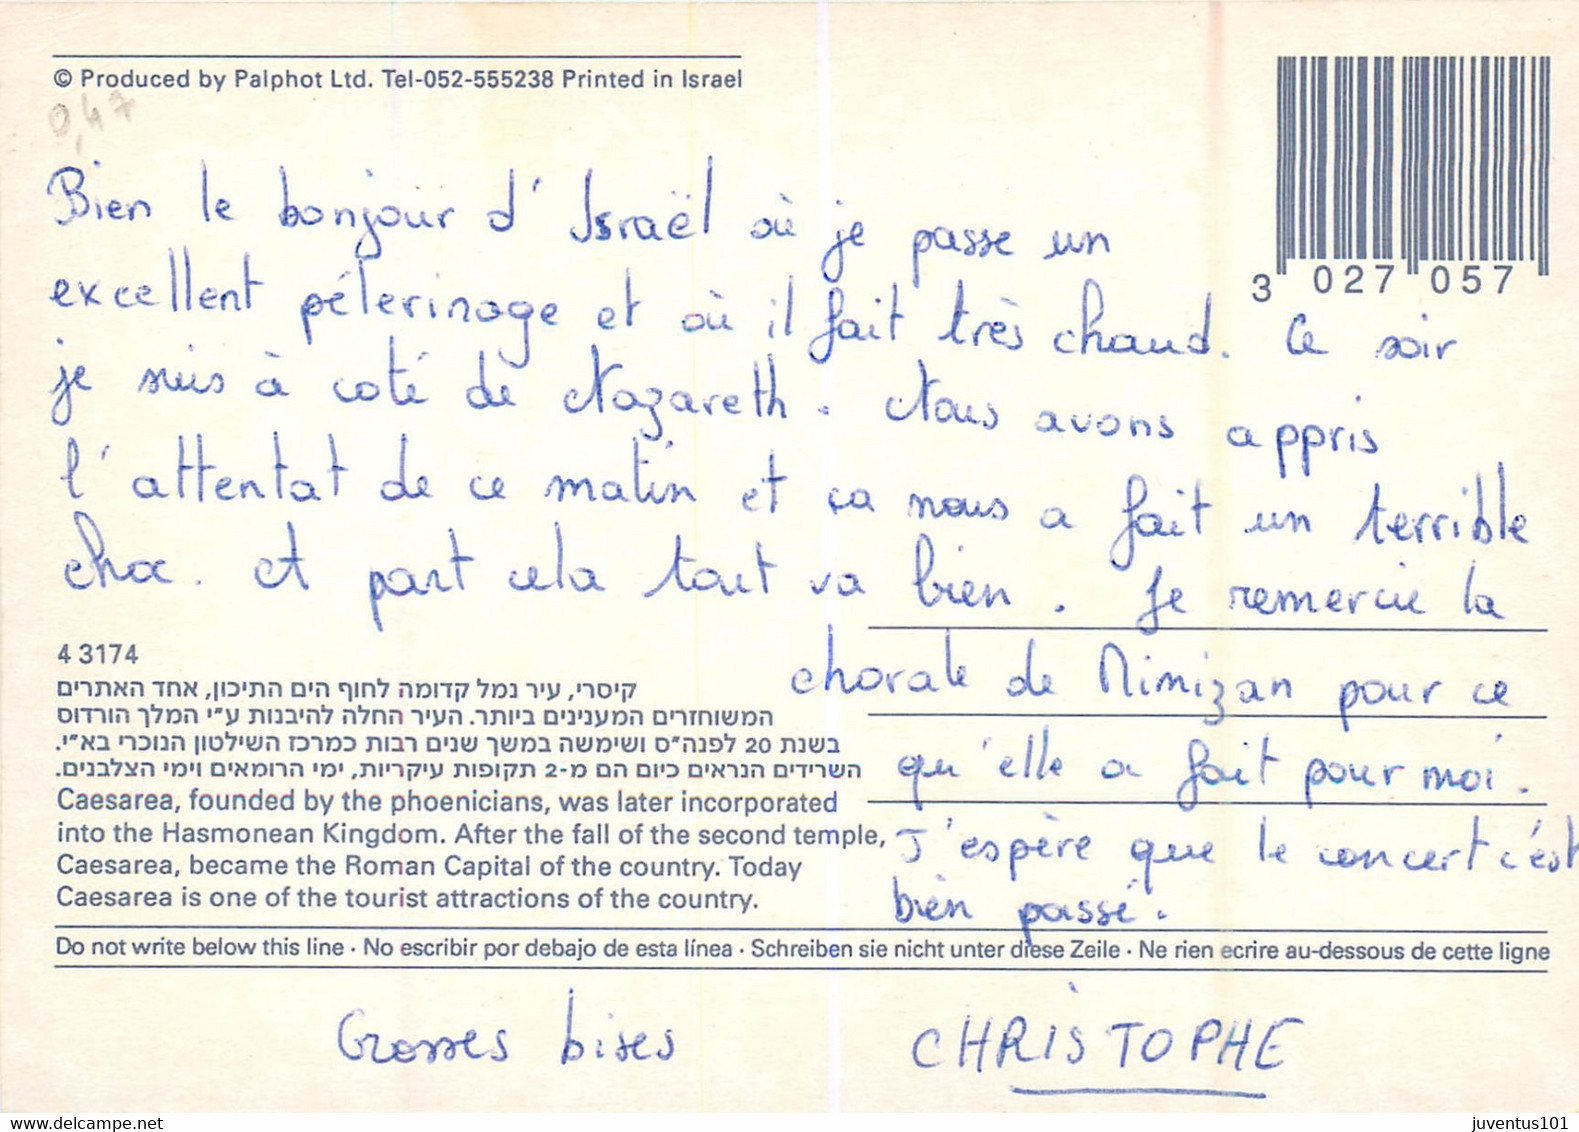 © Produced by Palphot Ltd. Tel-052-555238 Printed in Israel
0,47
3 027 057
Bien le bonjour d'Israël où je passe un
excellent pélerinage et où il fait très chaud. Ce soir
je suis à coté de Nazareth. Nous avons appris
l'attentat de ce matin et ça nous a fait un terrible
choc. A part cela tout va bien. Je remercie la
chorale de Mimizan pour ce
qu'elle a fait pour moi.
J'espère que le concert c'est
bien passé.
4 3174
קיסרי, עיר נמל קדומה לחוף הים התיכון, אחד האתרים
המשוחזרים המענינים ביותר. העיר החלה להיבנות ע״י המלך הורדוס
בשנת 20 לפנה״ס ושימשה במשך שנים רבות כמרכז השילטון הנוכרי בא״י.
השרידים הנראים כיום הם מ-2 תקופות עיקריות, ימי הרומאים וימי הצלבנים.
Caesarea, founded by the phoenicians, was later incorporated
into the Hasmonean Kingdom. After the fall of the second temple,
Caesarea, became the Roman Capital of the country. Today
Caesarea is one of the tourist attractions of the country.
Do not write below this line · No escribir por debajo de esta línea · Schreiben sie nicht unter diese Zeile · Ne rien ecrire au-dessous de cette ligne
Grosses bises CHRISTOPHE
juventus101